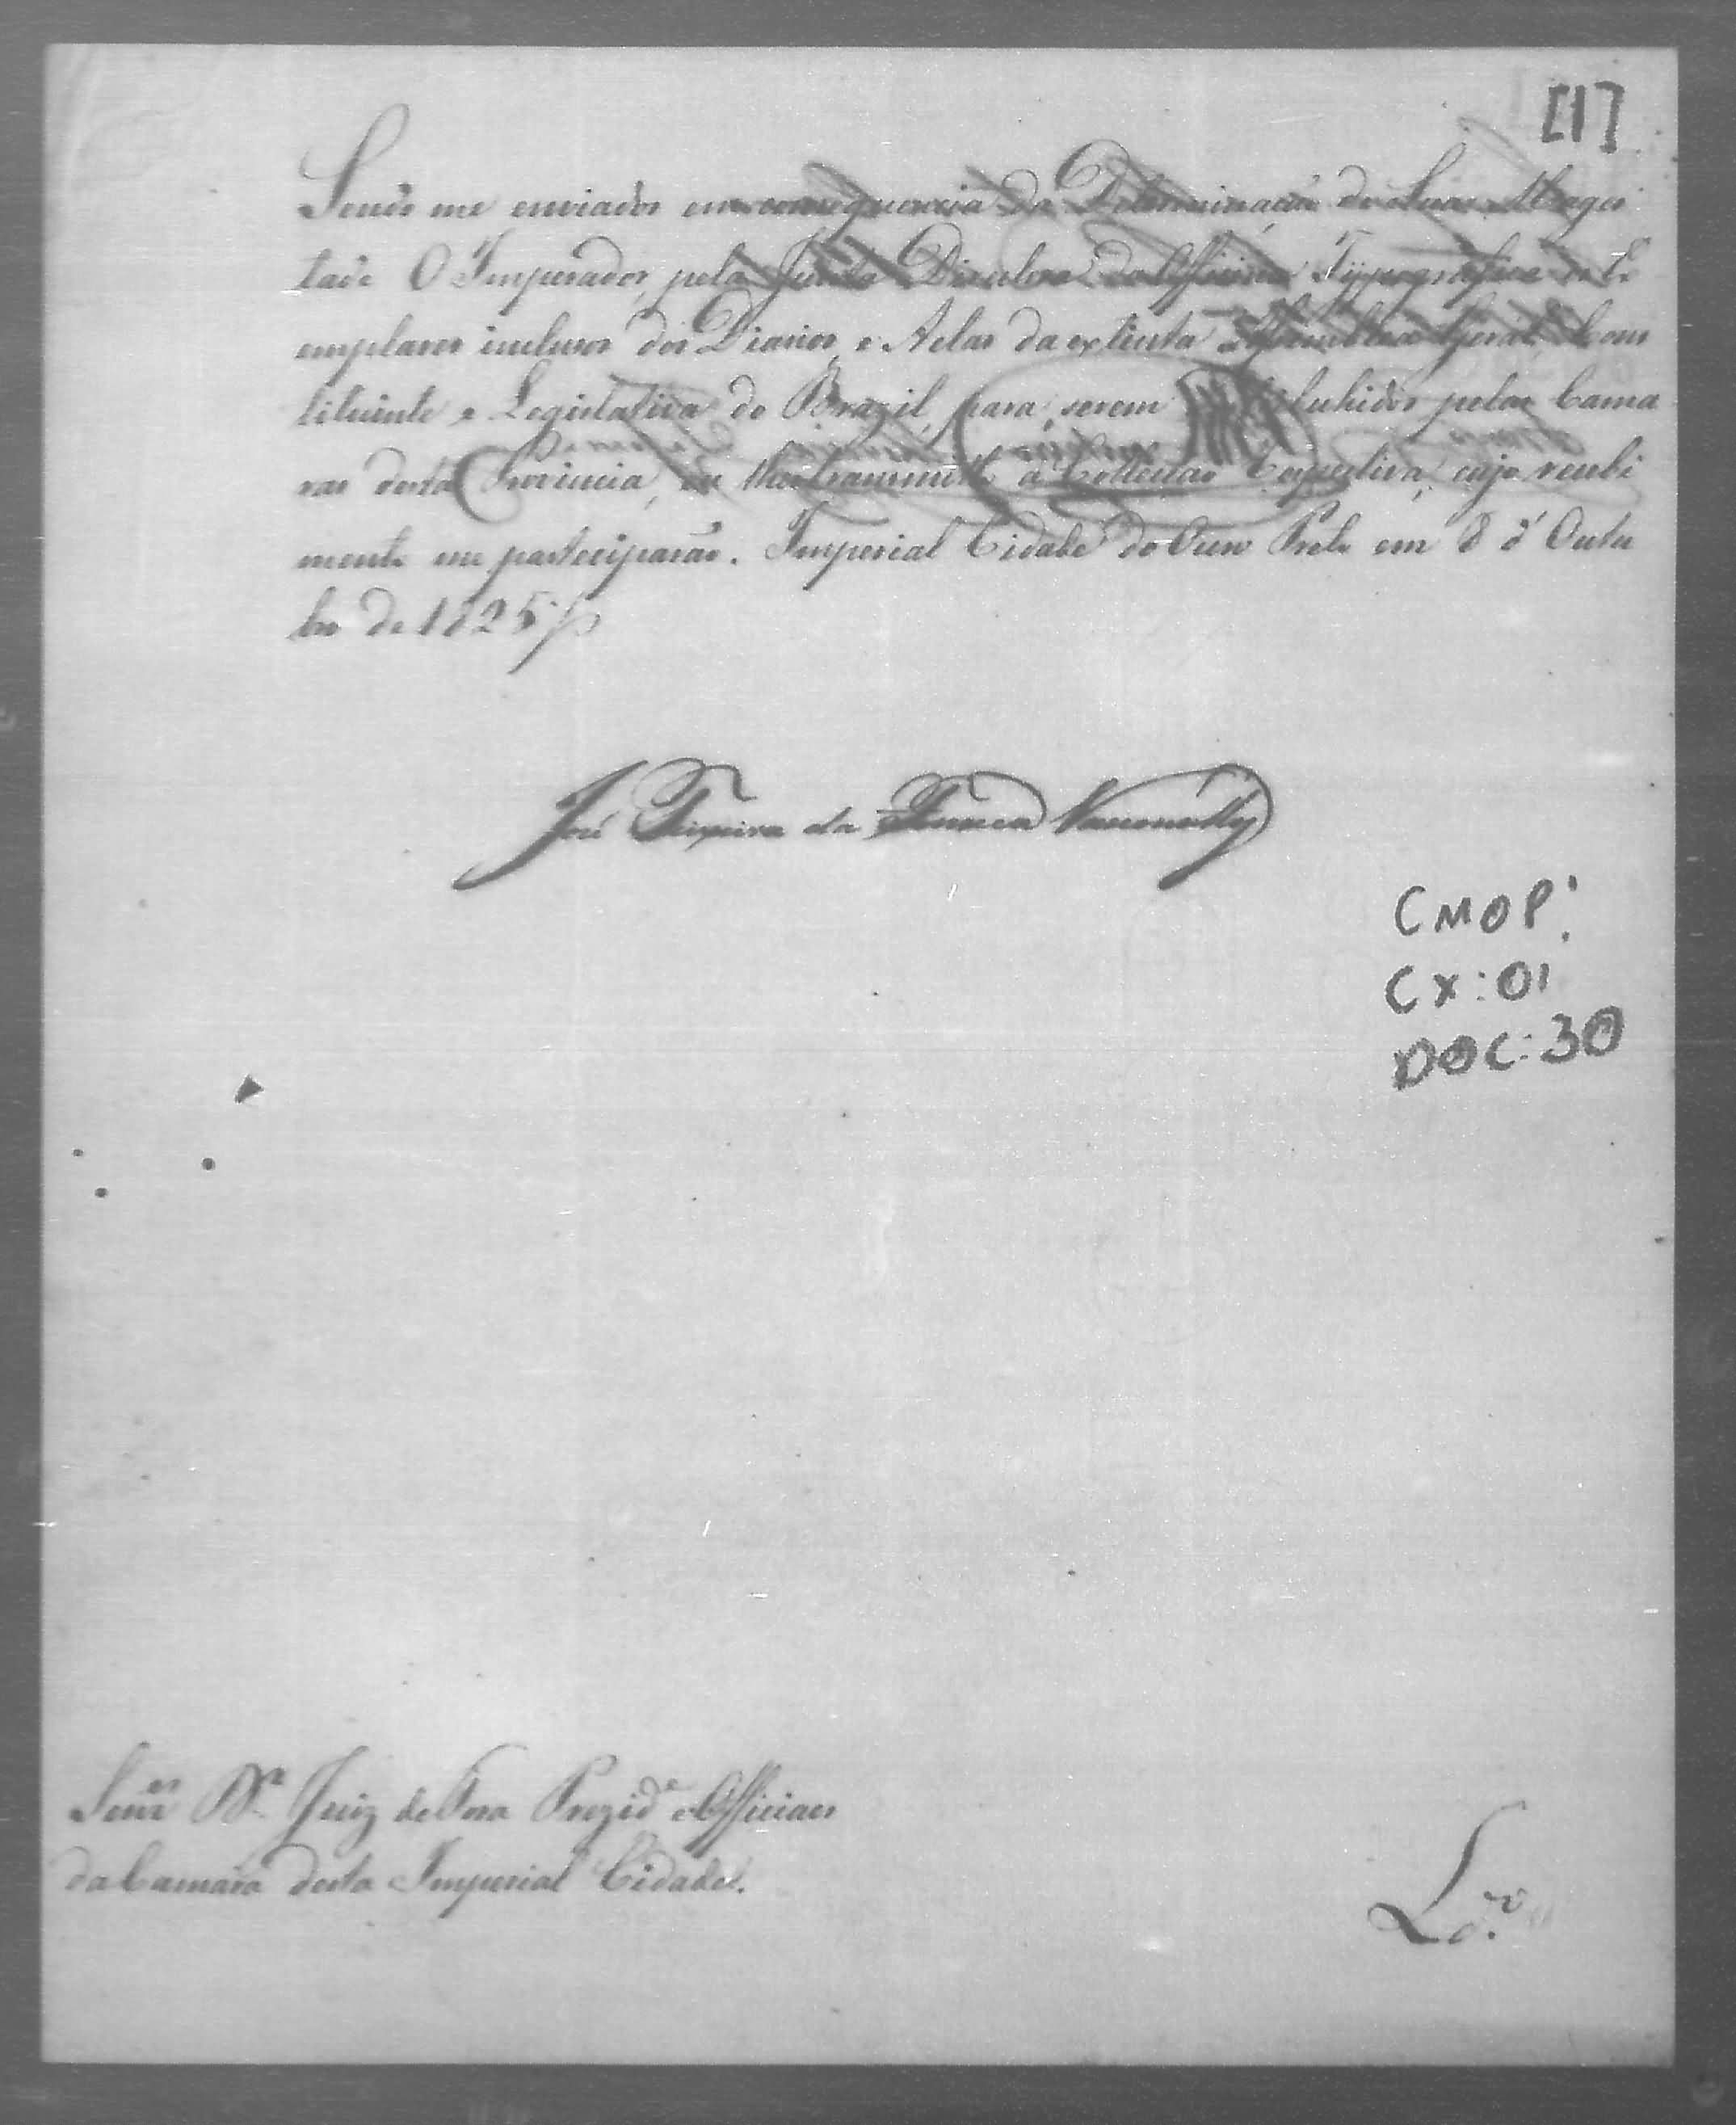 [1]
Sendo me enviados em consequencia da Determinação de Sua Mages
tade O Imperador, pela Junta Directora da Officina Typografica os Ex
emplares inclusos dos Diarios, e Actas da extinta Assemblea Geral, Cons
tituinte e Legislativa do Brazil, para serem pelas Cama
ras desta Provincia, a Collecção respectiva, cujo recebi
mento me participarão. Imperial Cidade do Ouro Preto em 8 d'Outu
bro de 1825
José Teixeira da Fonseca Vasconcellos
CMOP:
CX:01
DOC:30
Senres Dr. Juiz de Fora Prezide e Officiaes
da Camara desta Imperial Cidade.